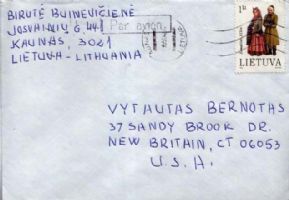 BIRUTĖ BUINEVIČIENĖ
JOSVAINIŲ 6, 441
KAUNAS, 3021
LIETUVA - LITHUANIA
Par avion
1 Lt
LIETUVA
VYTAUTAS BERNOTAS
37 SANDY BROOK DR.
NEW BRITAIN, CT 06053
U. S. A.